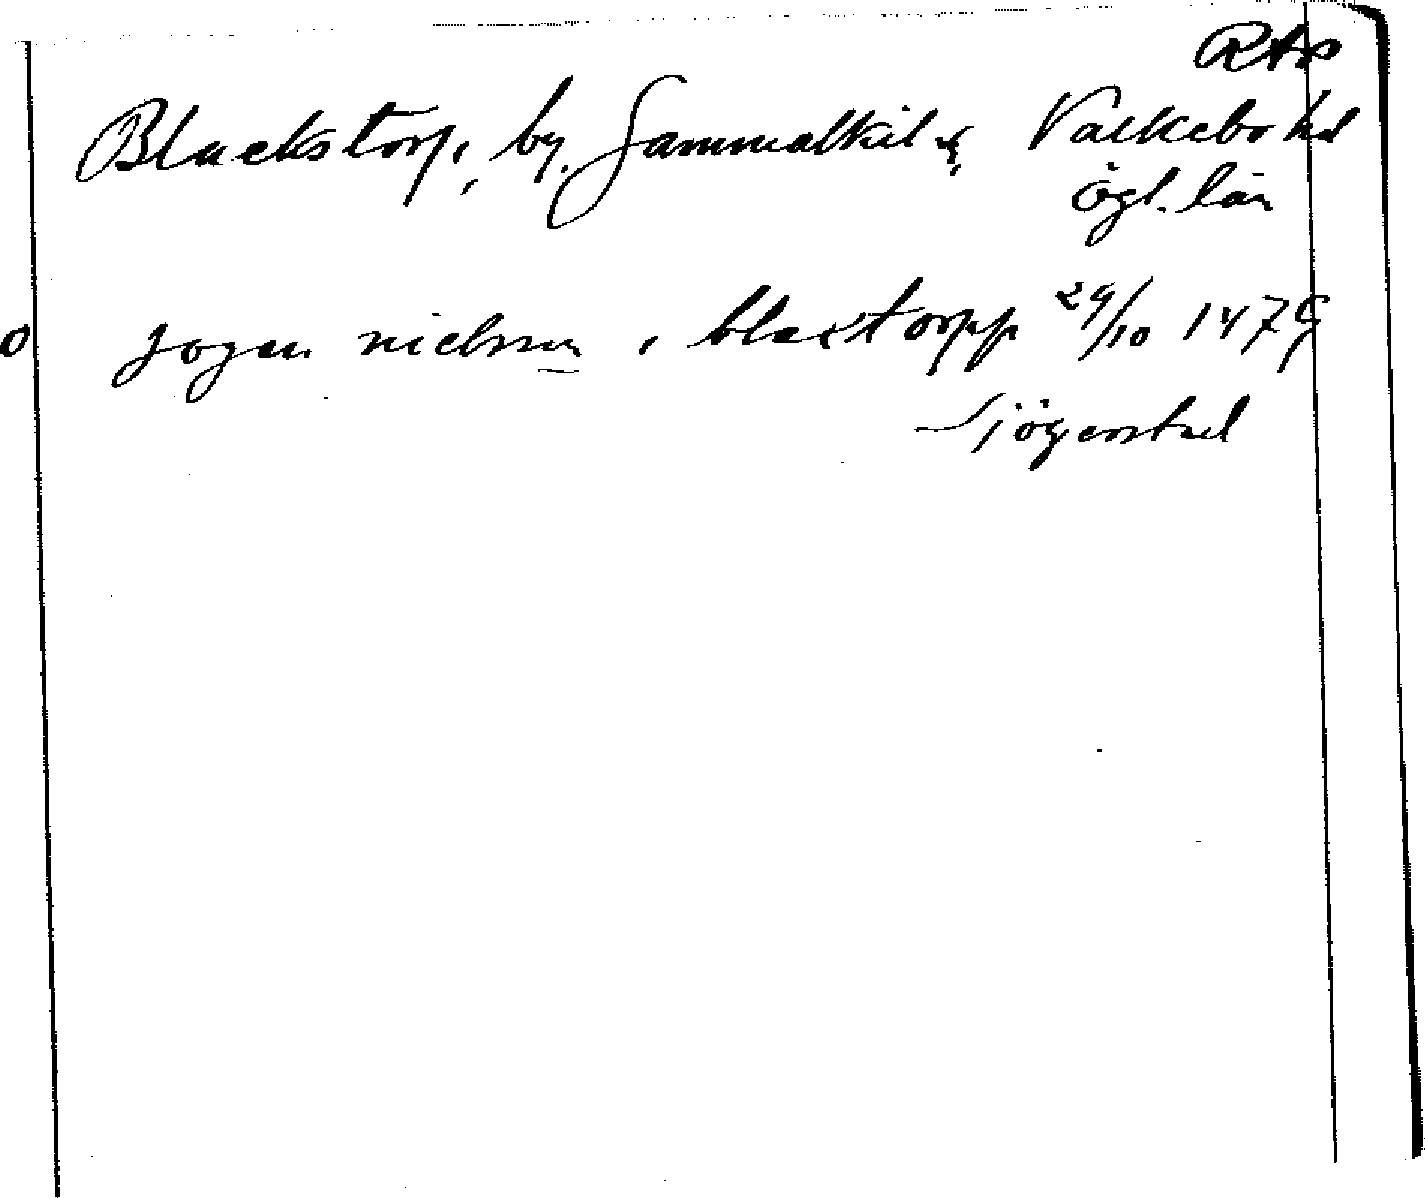 RAp
Blackstorp, by. Gammalkils sn, Valkebo hd
Ögl. län
jogan nielsson i blaxtorpp 29/10 1479
Sjögerstad